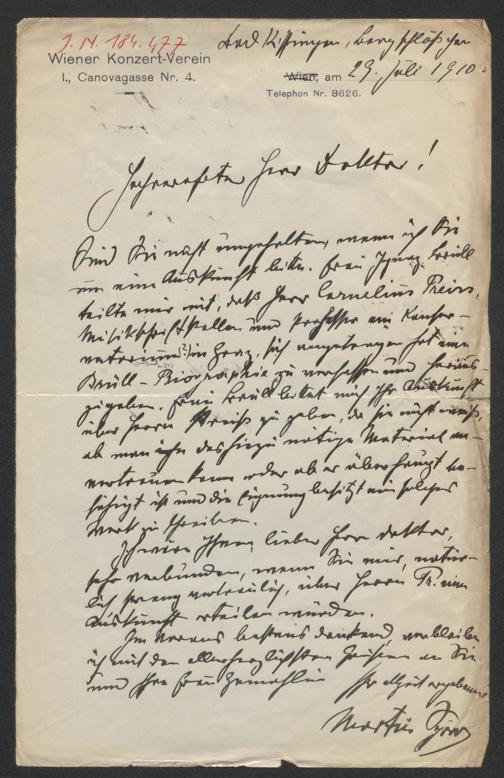 J. N. 184.477
Wiener Konzert-Verein
I., Canovagasse Nr. 4.
Bad Kissingen, Bergschlößchen
Wien, am 29. Juli 1910.
Telephon Nr. 8626.
Sehrverehrter Herr Doktor!
Sind Sie nicht ungehalten, wenn ich Sie
um eine Auskunft bitte. Frau Ignaz Brüll
teilte mir mit, daß Herr Cornelius Preiss,
Musikschriftsteller und Professor am Konser-
vatorium(?) in Graz, sich angetragen hat eine
Brüll-Biographie zu verfassen und heraus-
zugeben. Frau Brüll bittet mich ihr Auskunft
über Herrn Preiß zu geben, da sie nicht weiß,
ob man ihm das hiezu nötige Material an-
vertrauen kann oder ob er überhaupt be-
fähigt ist und die Eignung besitzt ein solches
Werk zu schreiben.
Ich wäre Ihnen lieber Herr Doktor,
sehr verbunden, wenn Sie mir, natür-
lich streng vertraulich, über Herrn Pr. eine
Auskunft erteilen würden.
Im Voraus bestens dankend, verbleibe
ich mit den allerherzlichsten Grüßen an Sie
und Ihre Frau Gemahlin Ihr allzeit ergebener
Martin Spörr